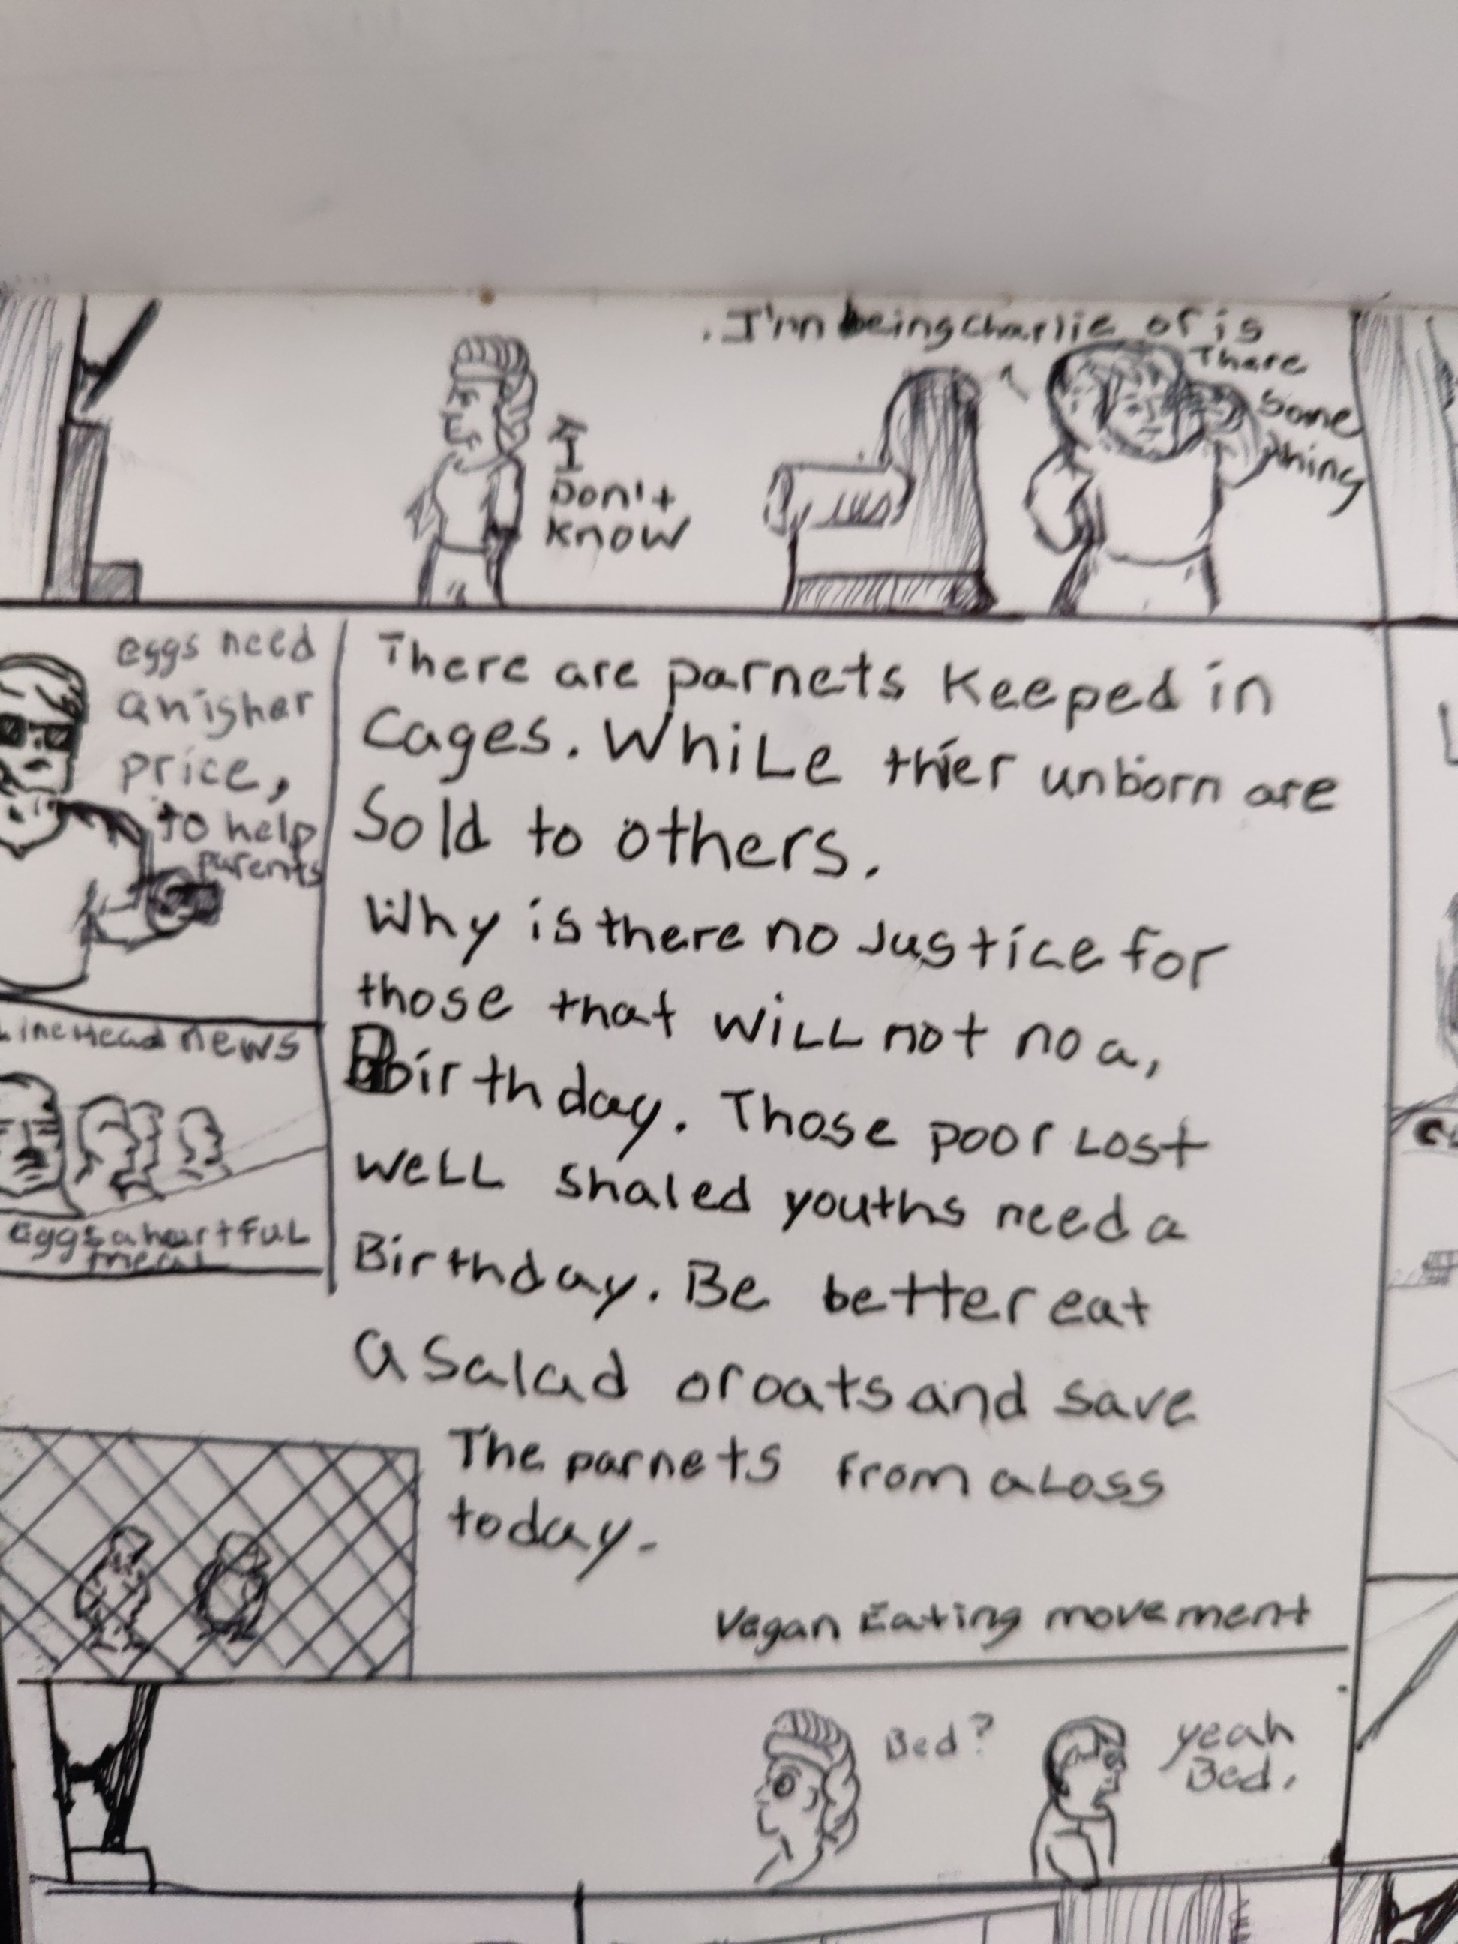 .I'm being charlie or is
There
Some
thing
I
Don't
Know
eggs need
a nigher
price,
to help
parents
LineHead news
eggs a heartful
meal
There are parnets Keeped in
Cages. While thier unborn are
Sold to others.
Why is there no Justice for
those that WiLL not no a,
Birthday. Those poor Lost
WeLL shaled youths need a
Birthday. Be better eat
a Salad or oats and save
The parnets from a Loss
today.
Vegan Eating movement
Bed?
yeah
Bed.